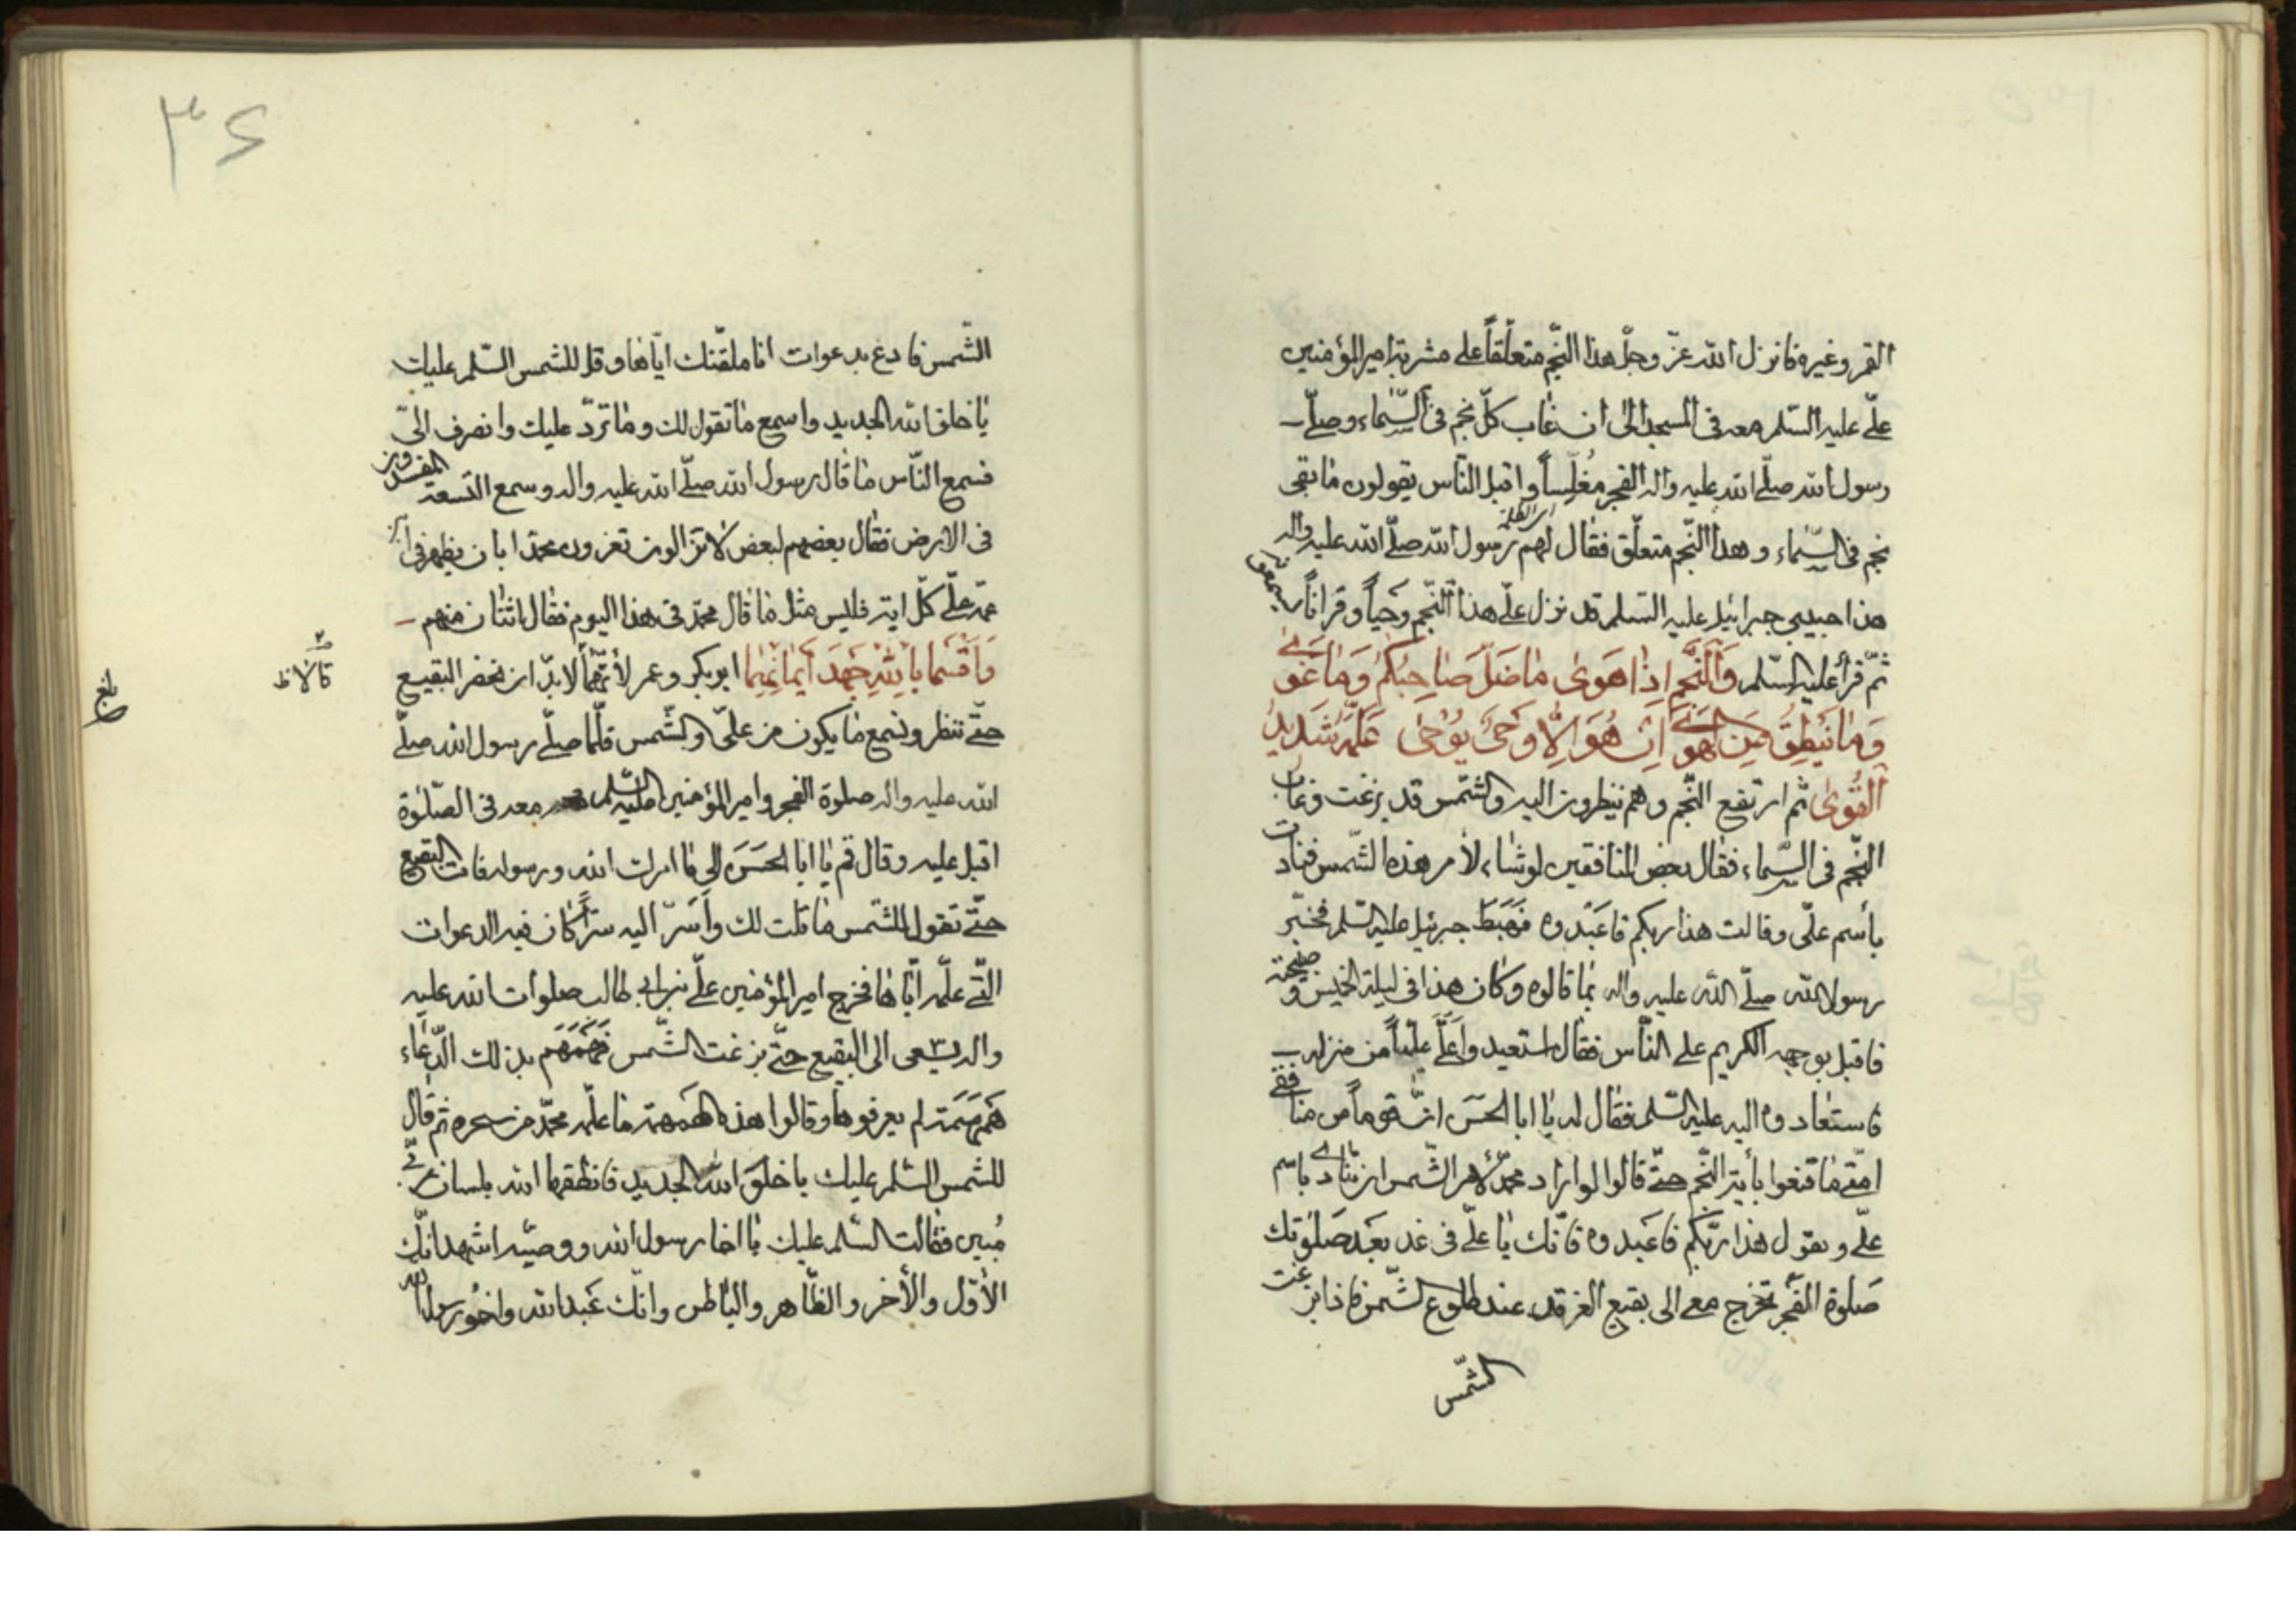 القمر وغيره فانزل الله عزّ وجلّ هذا النّجم متعلّقاً على مشربة امير المؤمنين
علّى عليه السّلم معه فى المسجد الى ان غاب كلّ نجم فى السّماء وصلّى
رسول الله صلّى الله عليه واله الفجر مُغلّساً واقبل النّاس يقولون ما بقى
نجم فى السّماء وهذا النّجم متعلّق فقال لهم رسول الله صلّى الله عليه واله
هذا حبيبى جبرائيل عليه السّلم قد نزل علّى هذا النّجم وحياً وقراناً تسمعونه
ثمّ قرأ عليه السّلم وَالنَّجمِ اِذَا هَوىٰ مٰا ضَلَّ صٰاحِبُكُم وَمٰا غَوىٰ
وَمٰا يَنطِقُ عَنِ الهَوىٰ اِن هُوَ اِلّٰا وَحىٌ يُوحٰى عَلَّمَهُ شَدِيدُ
القُوىٰ ثمّ ارتفع النّجم وهم ينظرون اليه والشّمس قد بزغت وغاب
النّجم فى السّماء فقال بعض المنافقين لو شاء لأمر هذه الشّمس فنادت
بأسم علّى وقالت هذا ربكم فاعَبُدوه فهَبَطَ جبرئيل عليه السّلم فخبّر
رسول الله صلّى الله عليه واله بما قالوه وكان هذا فى ليلة الخميس وصبيحته
فاقبل بوجهه الكريم على النّاس فقال استعيدوا علَّى عليّاً من منزله
فاستعادوه اليه عليه السّلم فقال له يا ابا الحسَن انّ قوماً من منافقى
امّتى ما قنعوا بأية النّجم حتّى قالوا لو اراد محمّد لأمر الشّمس ان تنادى باسم
علّى ويقول هذا ربّكم فاعبدوه فانّك يا علّى فى غد بعَد صَلٰوتك
صَلوة الفجر تخرج معى الى بقيع الغرقد عند طلوع الشّمس فاذا بزغت
الشّمس
٣٤
الشّمس فادع بدعوات انا ملقّنك ايّاها وقل للشمس السّلم عليك
يا خلق الله الجديد واسمع ما تقول لك وما تردّ عليك وانصرف الىّ
فسمع النّاس ما قال رسول الله صلّى الله عليه واله وسمع التسعة المفسدون
فى الارض فقال بعضهم لبعض لا تزالون تغرون محمّدا بان يظهر فى ابن
عمّه علّى كلّ اية فليس مثل ما قال محمّد فى هذا اليوم فقال اثنان منهم
وَاَقْسَمٰا بِاللهِ جَهدَ اَيمٰانِهِما ابو بكر وعمر لأنّهُما لا بدّ ان نحضر البقيع
قالا ظ
بلغ
حتّى ننظر ونسمع ما يكون من علّى والشّمس فلمّا صلّى رسول الله صلّى
الله عليه واله صلوة الفجر وامير المؤمنين عليه السّلم معه فى الصّلٰوة
اقبل عليه وقال قم يا ابا الحسَن الى ما امرك الله ورسوله فات البقيع
حتّى تقول للشّمس ما قلت لك وأسَرّ اليه سرّاً كان فيه الدعوات
الّتى علّمه ايّاها فخرج امير المؤمنين علّى بن ابى طالب صلوات الله عليه
واله يسعى الى البقيع حتّى بزغت الشّمس فَهَمهَم بذلك الدّعاء
هَمهَمَة لم يعرفوها وقالوا هذه الهَمهمة ما علّمه محمّد من سحره ثم قال
للشمس السّلم عليك يا خلق الله الجديد فانطقها الله بلسان عربىّ
مُبين فقالت السّلم عليك يا اخا رسول الله ووصيّه اشهد انّك
الأوّل والأخر والظّاهر والباطن وانّك عَبد الله واخُو رسول الله